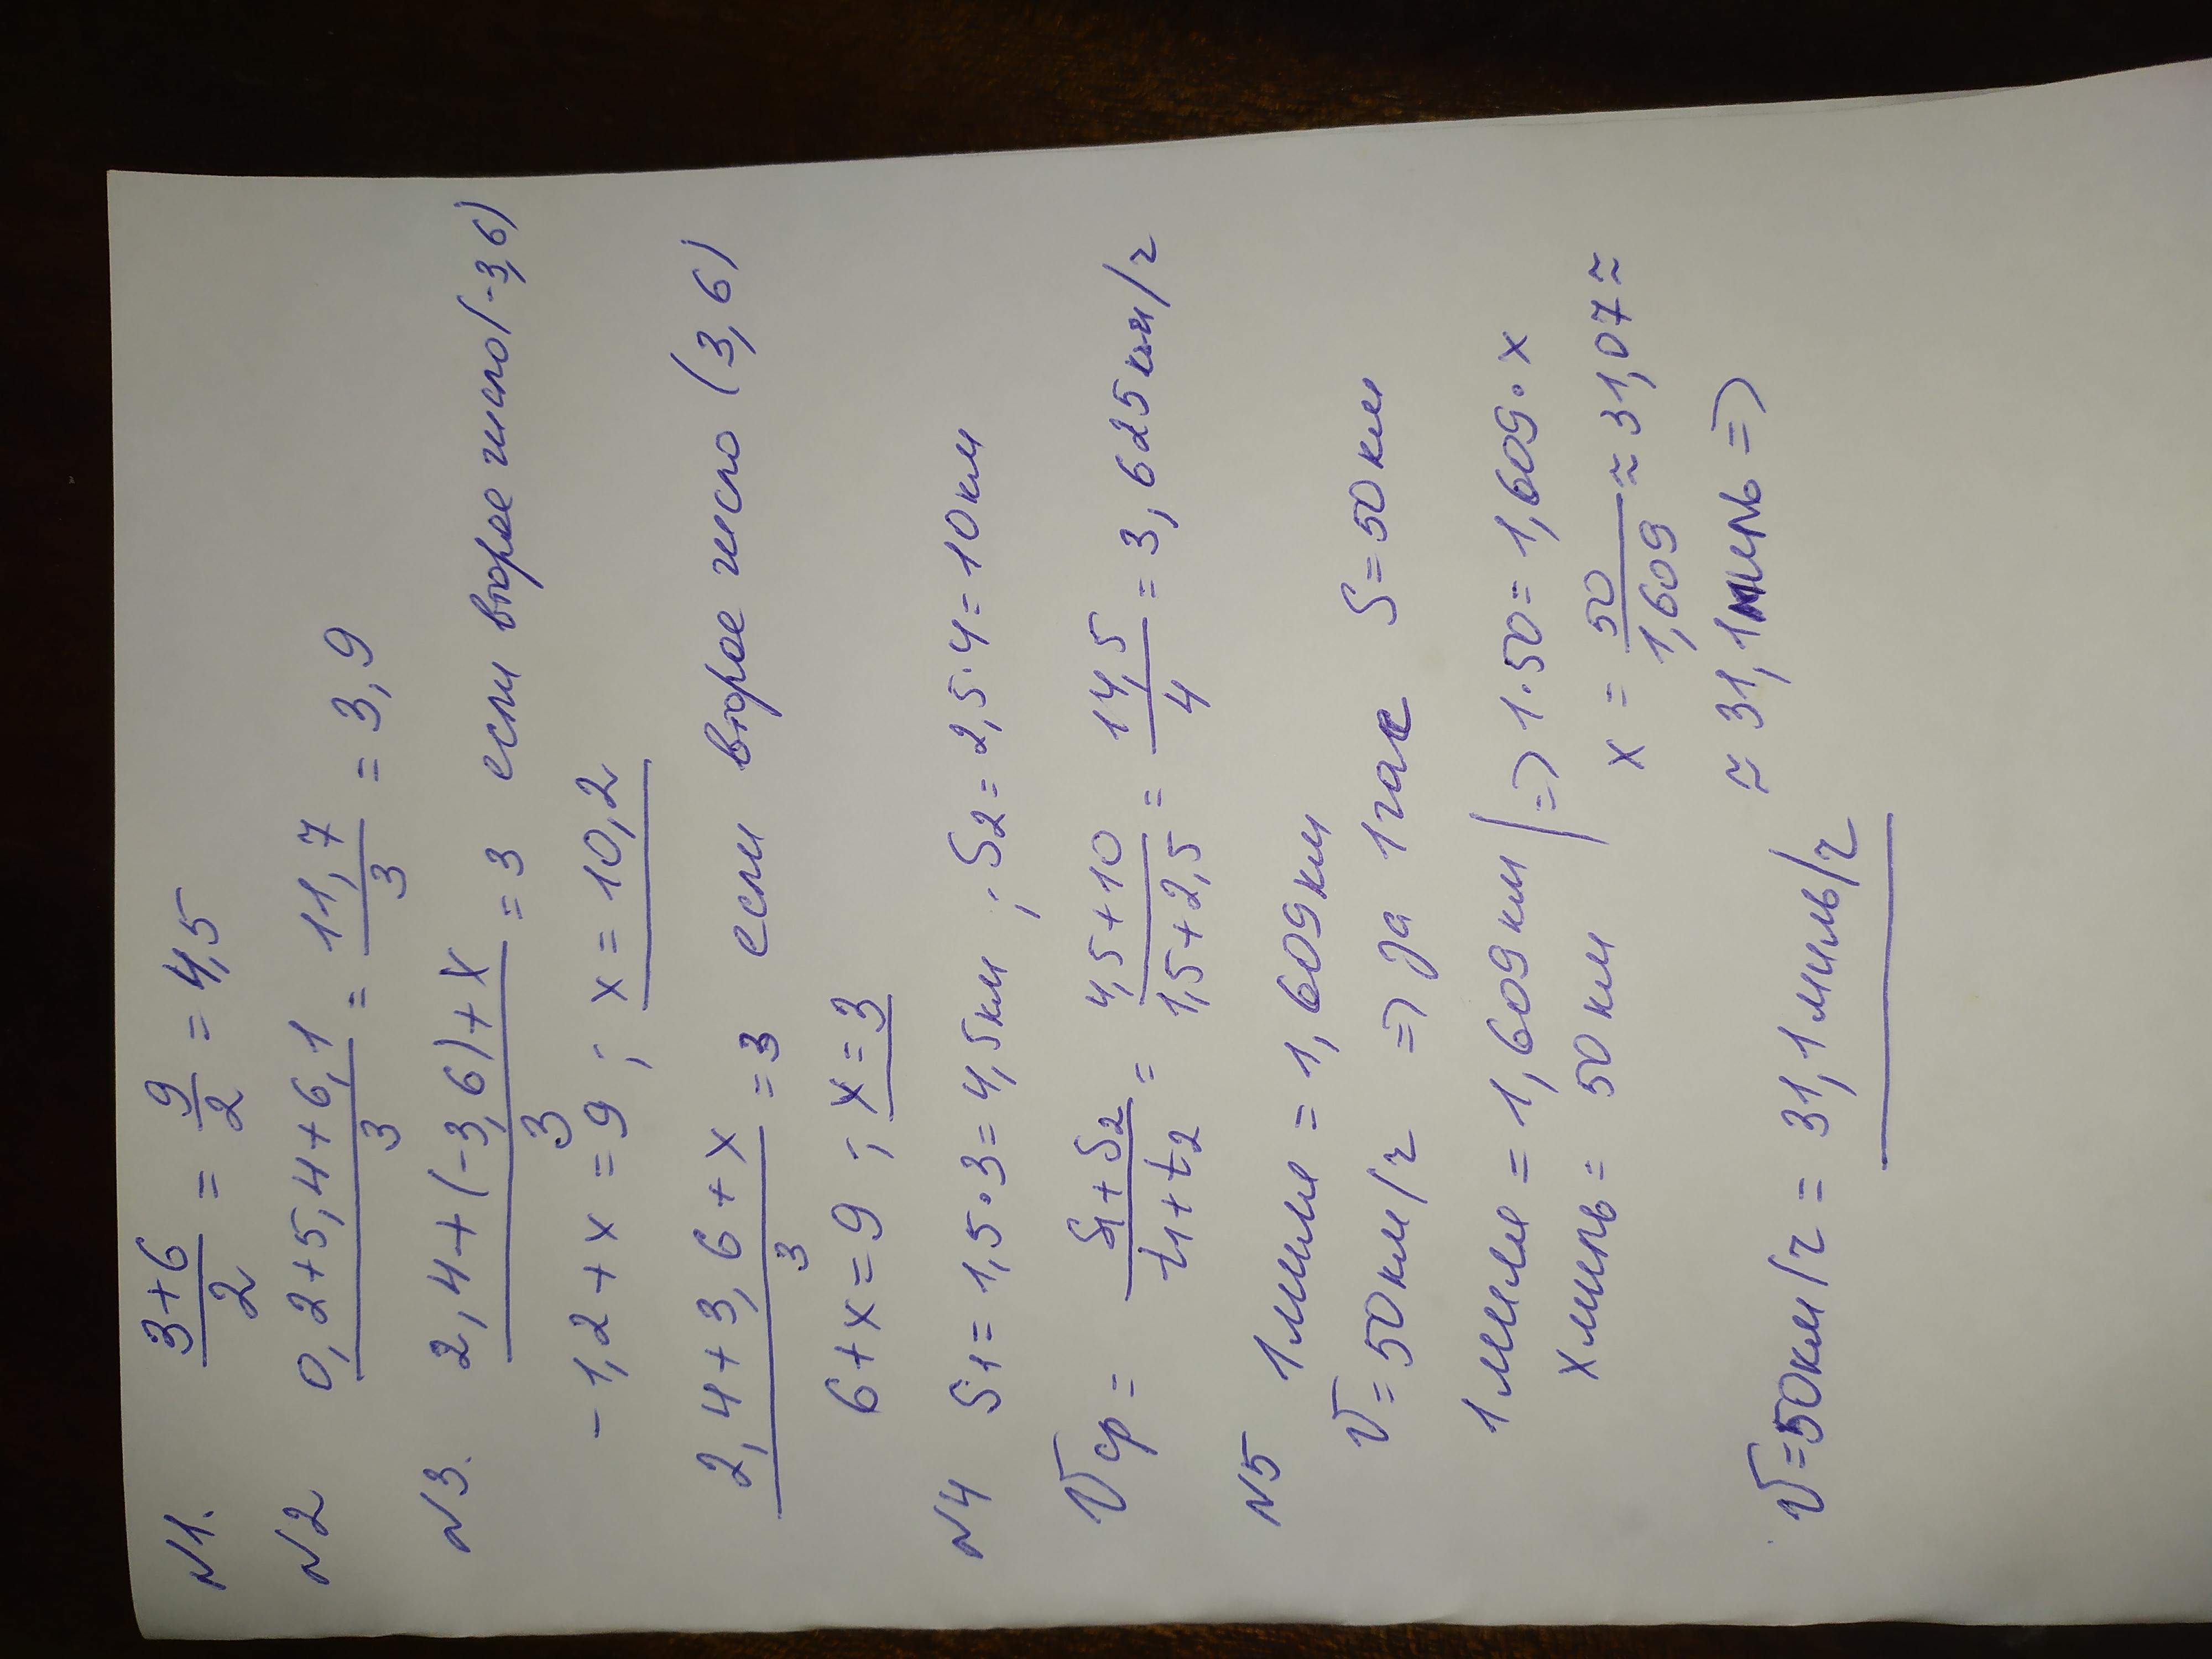 N1. 3+6/2 = 9/2 = 4,5
N2 0,2+5,4+6,1/3 = 11,7/3 = 3,9
N3. 2,4+(-3,6)+x/3 = 3 если второе число (-3,6)
-1,2+x=9 ; x=10,2
2,4+3,6+x/3 =3 если второе число (3,6)
6+x=9 ; x=3
N4 S1=1,5·3=4,5км ; S2=2,5·4=10км
Vср= S1+S2/t1+t2 = 4,5+10/1,5+2,5 = 14,5/4 = 3,625км/г
N5 1миля = 1,609км
V=50км/г => за 1час S=50км
1миля = 1,609км |=> 1·50=1,609·x
xмиль= 50км x = 50/1,609 ≈31,07≈
≈ 31,1миль =>
V=50км/г = 31,1миль/г